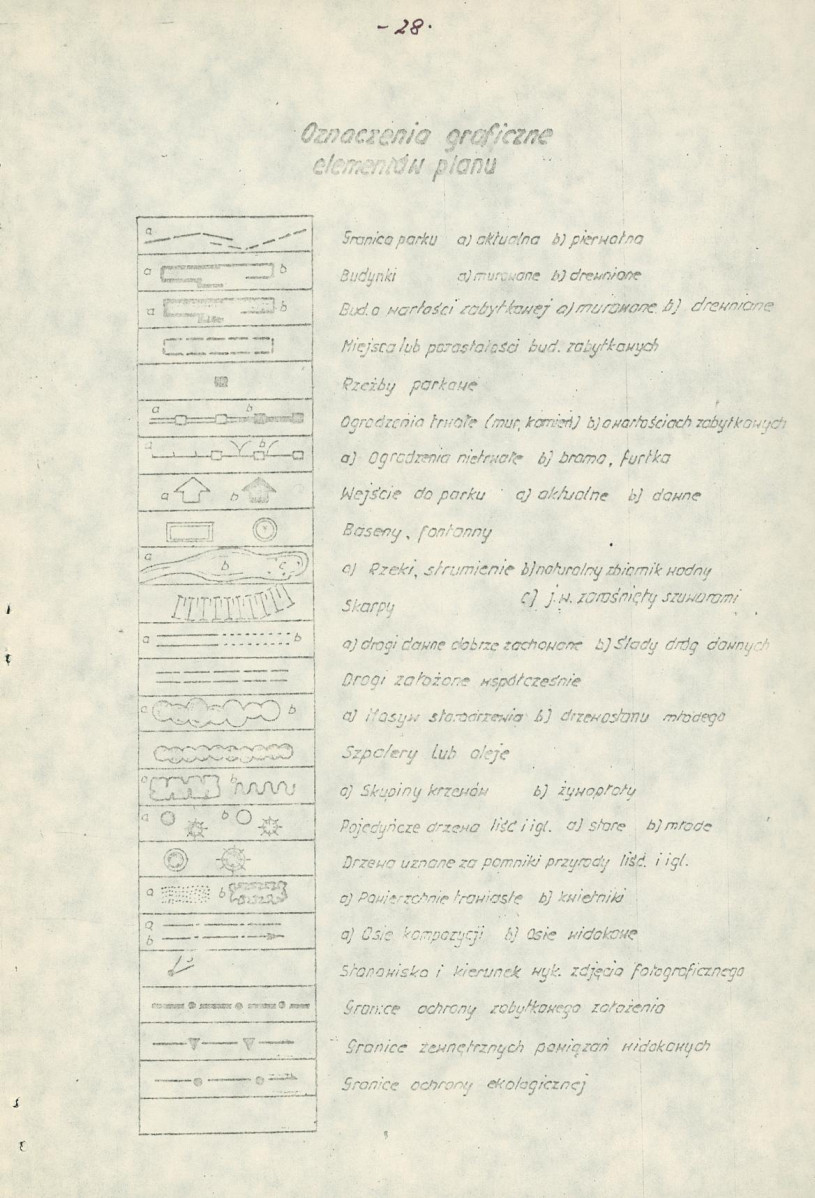 - 28 -
Oznaczenia graficzne
elementów planu
a
Granica parku a) aktualna b) pierwotna
a b
Budynki a) murowane b) drewniane
a b
Bud. o wartości zabytkowej a) murowane b) drewniane
Miejsca lub pozostałości bud. zabytkowych
Rzeźby parkowe
a b
Ogrodzenia trwałe (mur, kamień) b) o wartościach zabytkowych
a b
a) Ogrodzenia nietrwałe b) brama, furtka
a b
Wejście do parku a) aktualne b) dawne
Baseny, fontanny
a b c
a) Rzeki, strumienie b) naturalny zbiornik wodny
c) j.w. zarośnięty szuwarami
Skarpy
a b
a) drogi dawne dobrze zachowane b) Ślady dróg dawnych
Drogi założone współcześnie
a b
a) Masyw starodrzewia b) drzewostanu młodego
Szpalery lub aleje
a b
a) Skupiny krzewów b) żywopłoty
a b
Pojedyńcze drzewa liść i igl. a) stare b) młode
Drzewa uznane za pomniki przyrody liść. i igl.
a b
a) Powierzchnie trawiaste b) kwietniki
a
b
a) Osie kompozycji b) Osie widokowe
Stanowiska i kierunek wyk. zdjęcia fotograficznego
Granice ochrony zabytkowego założenia
Granice zewnętrznych powiązań widokowych
Granice ochrony ekologicznej